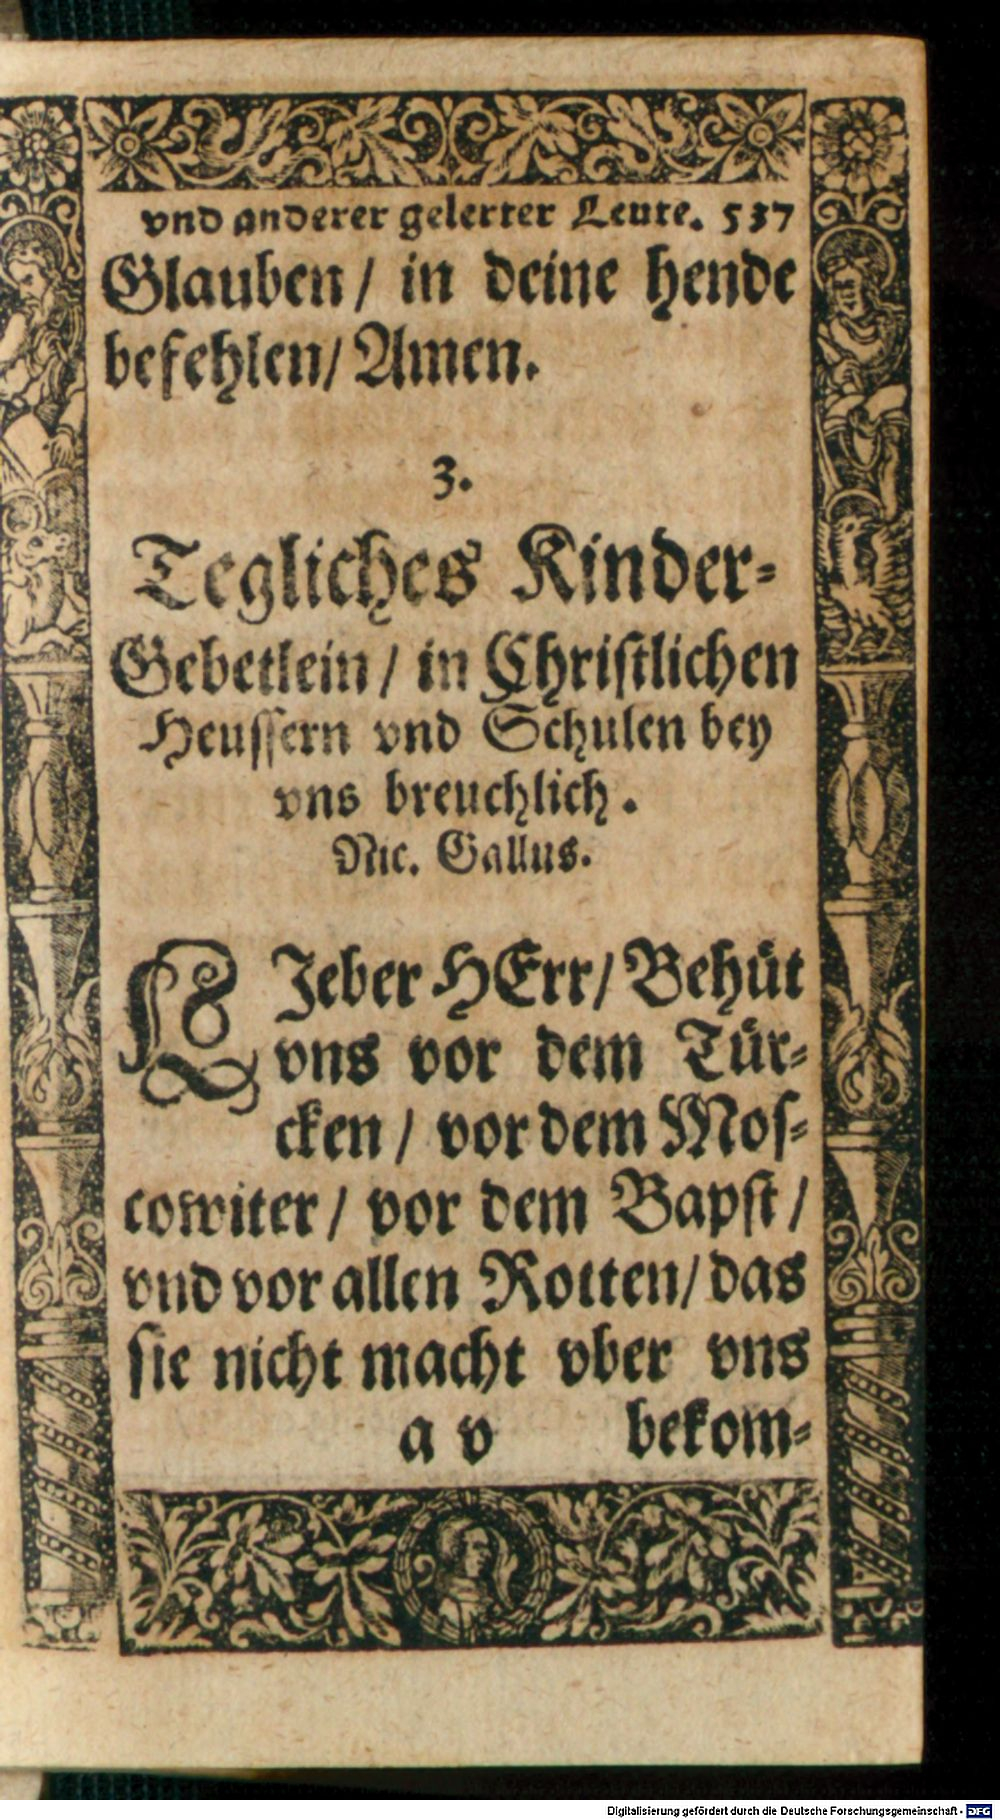 vnd anderer gelerter Leute. 537
Glauben / in deine hende
befehlen / Amen.
3.
Tegliches Kinder-
Gebetlein / in Christlichen
Heussern vnd Schulen bey
vns breuchlich.
Nic. Gallus.
LJeber HErr / Behüt
vns vor dem Tür-
cken / vor dem Mos-
cowiter / vor dem Bapst /
vnd vor allen Rotten / das
sie nicht macht vber vns
a v bekom-
Digitalisierung gefördert durch die Deutsche Forschungsgemeinschaft - DFG